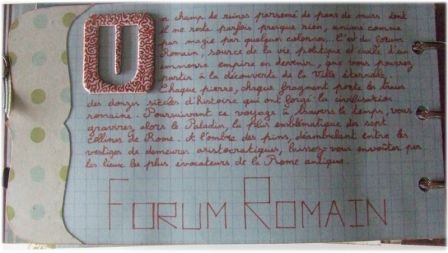 Un champ de ruines parsemé de pans de murs dont
il ne reste parfois presque rien, animé comme
par magie par quelque colonne. C'est au Forum
Romain, source de la vie politique et civile d'un
immense empire en devenir, que vous pourrez
partir à la découverte de la Ville éternelle.
Chaque pierre, chaque fragment porte les traces
des douze siècles d'histoire qui ont forgé la civilisation
romaine. Poursuivant ce voyage à travers le temps, vous
gravirez alors le Palatin, la plus emblématique des sept
collines de Rome. A l'ombre des pins, déambulant entre les
vestiges de demeures aristocratiques, laissez-vous envoûter par
les lieux les plus évocateurs de la Rome antique.
FORUM ROMAIN